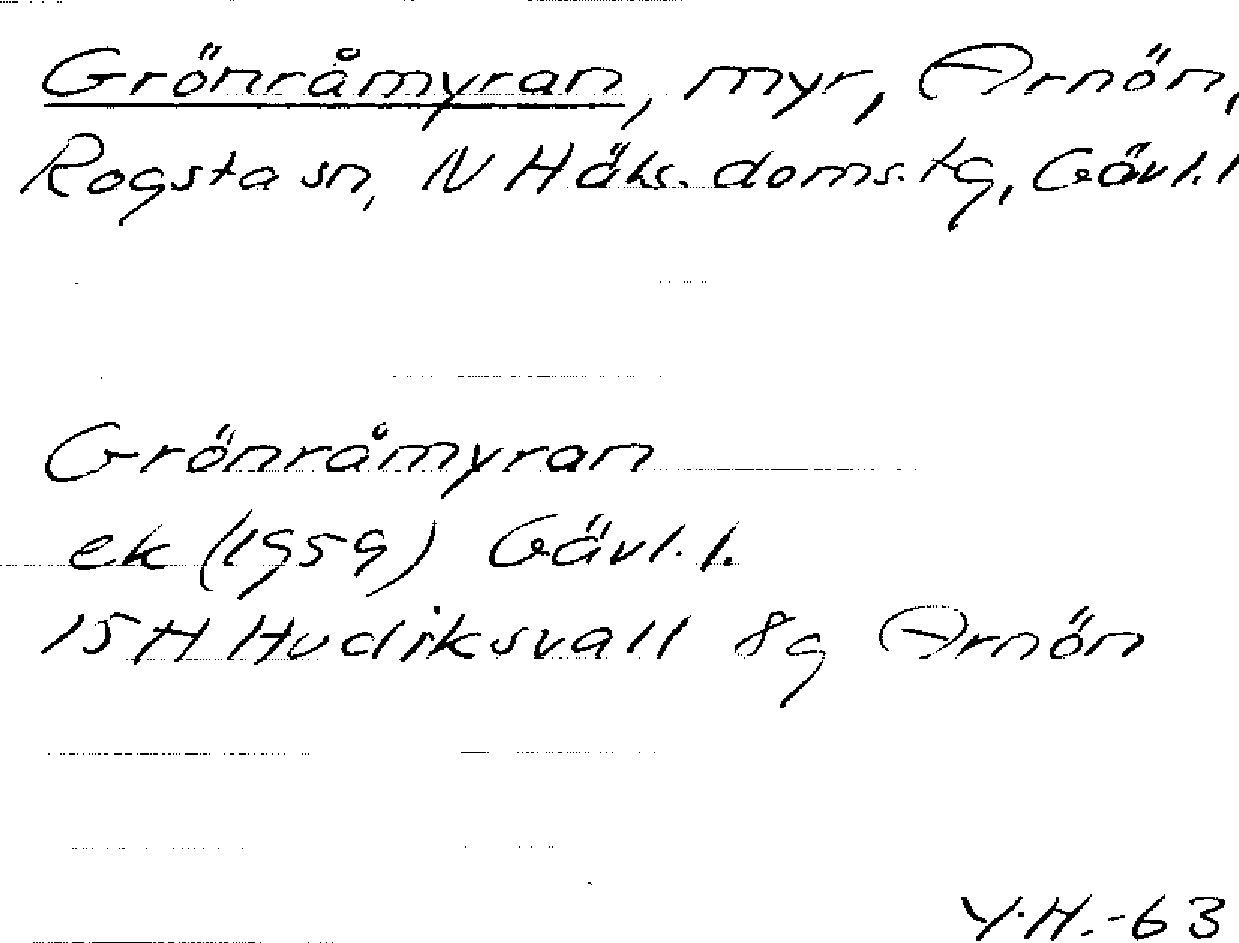 Grönråmyran, myr, Arnön,
Rogsta sn, N Häls. doms. tg, Gävl. l
Grönråmyran
ek (1959) Gävl. l.
15 H Hudiksvall 8g Arnön
Y.H.-63